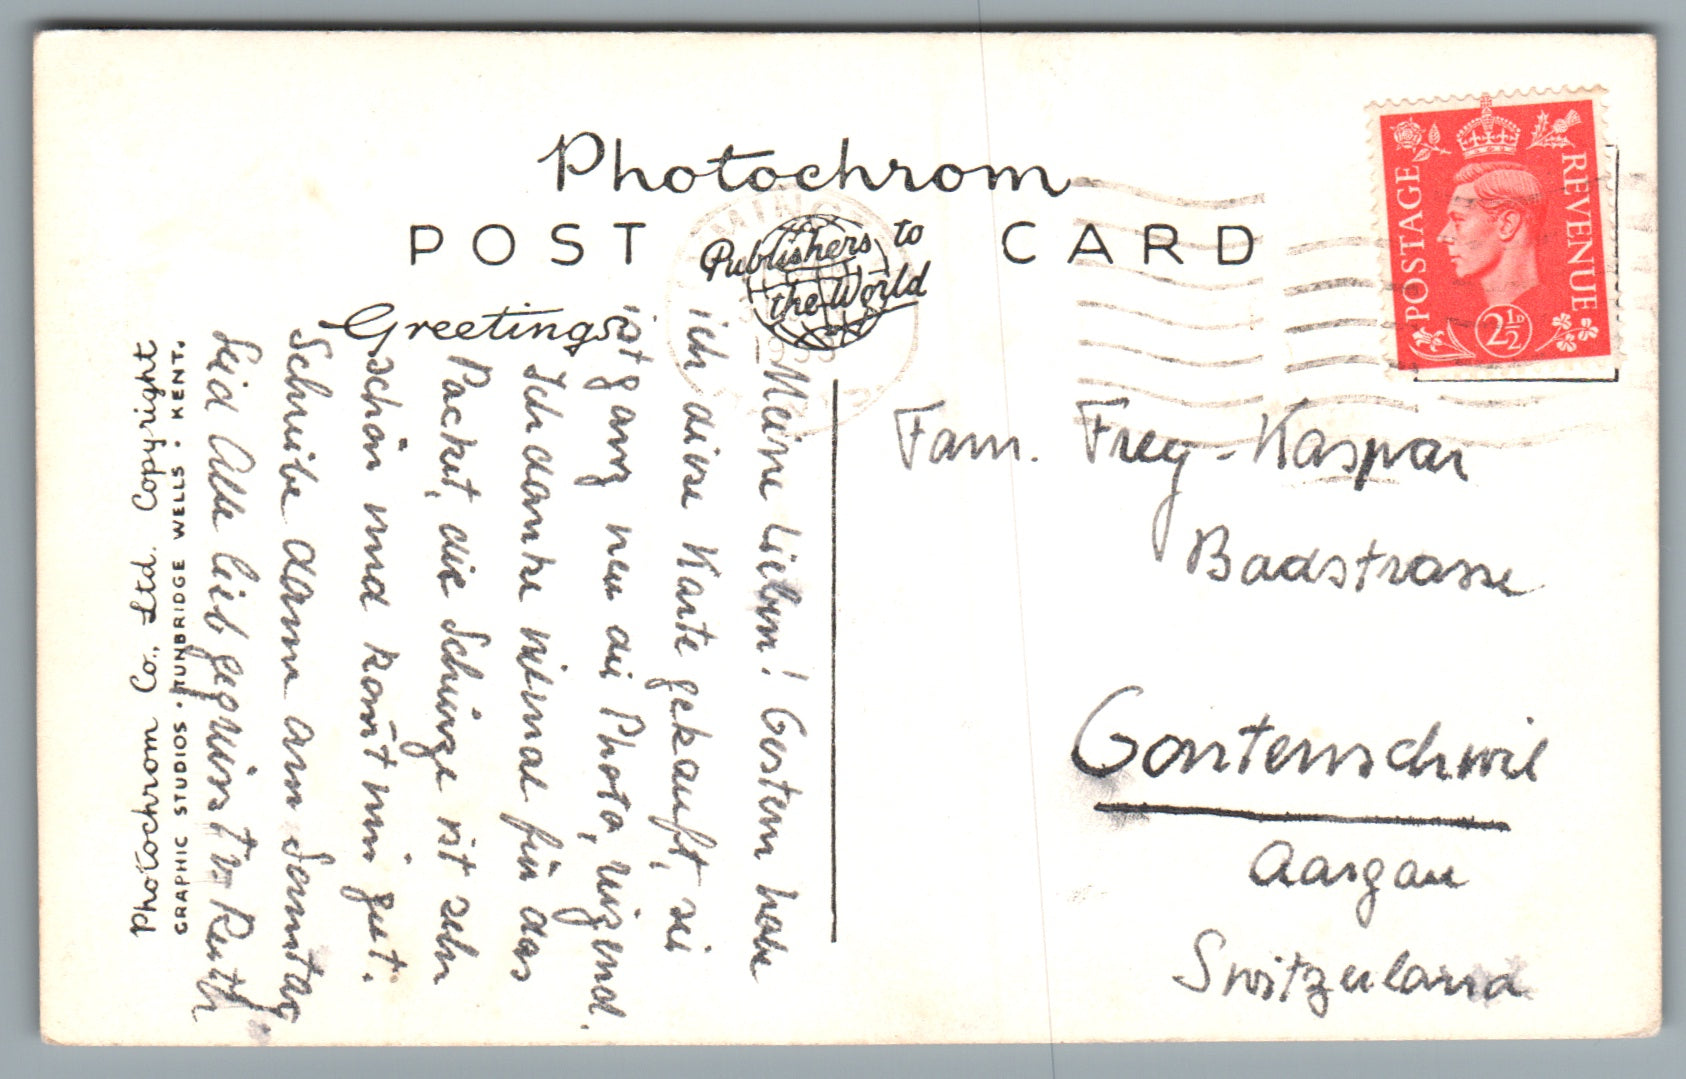 Photochrom
POST CARD
Publishers to
the World
Greetings
POSTAGE
REVENUE
2½D
Meine Lieben! Gestern habe
ich diese Karte gekauft, sie
ist ganz neu als Photo,
Ich danke vielmal für das
Packet, die Schürze ist sehr
schön und kommt mir gut.
Schreibe dann am Sonntag
Seid Alle lieb gegrüsst v. Ruth
Photochrom Co., Ltd. Copyright
GRAPHIC STUDIOS · TUNBRIDGE WELLS · KENT.
Fam. Frey-Kaspar
Badstrasse
Gontenschwil
Aargau
Switzerland